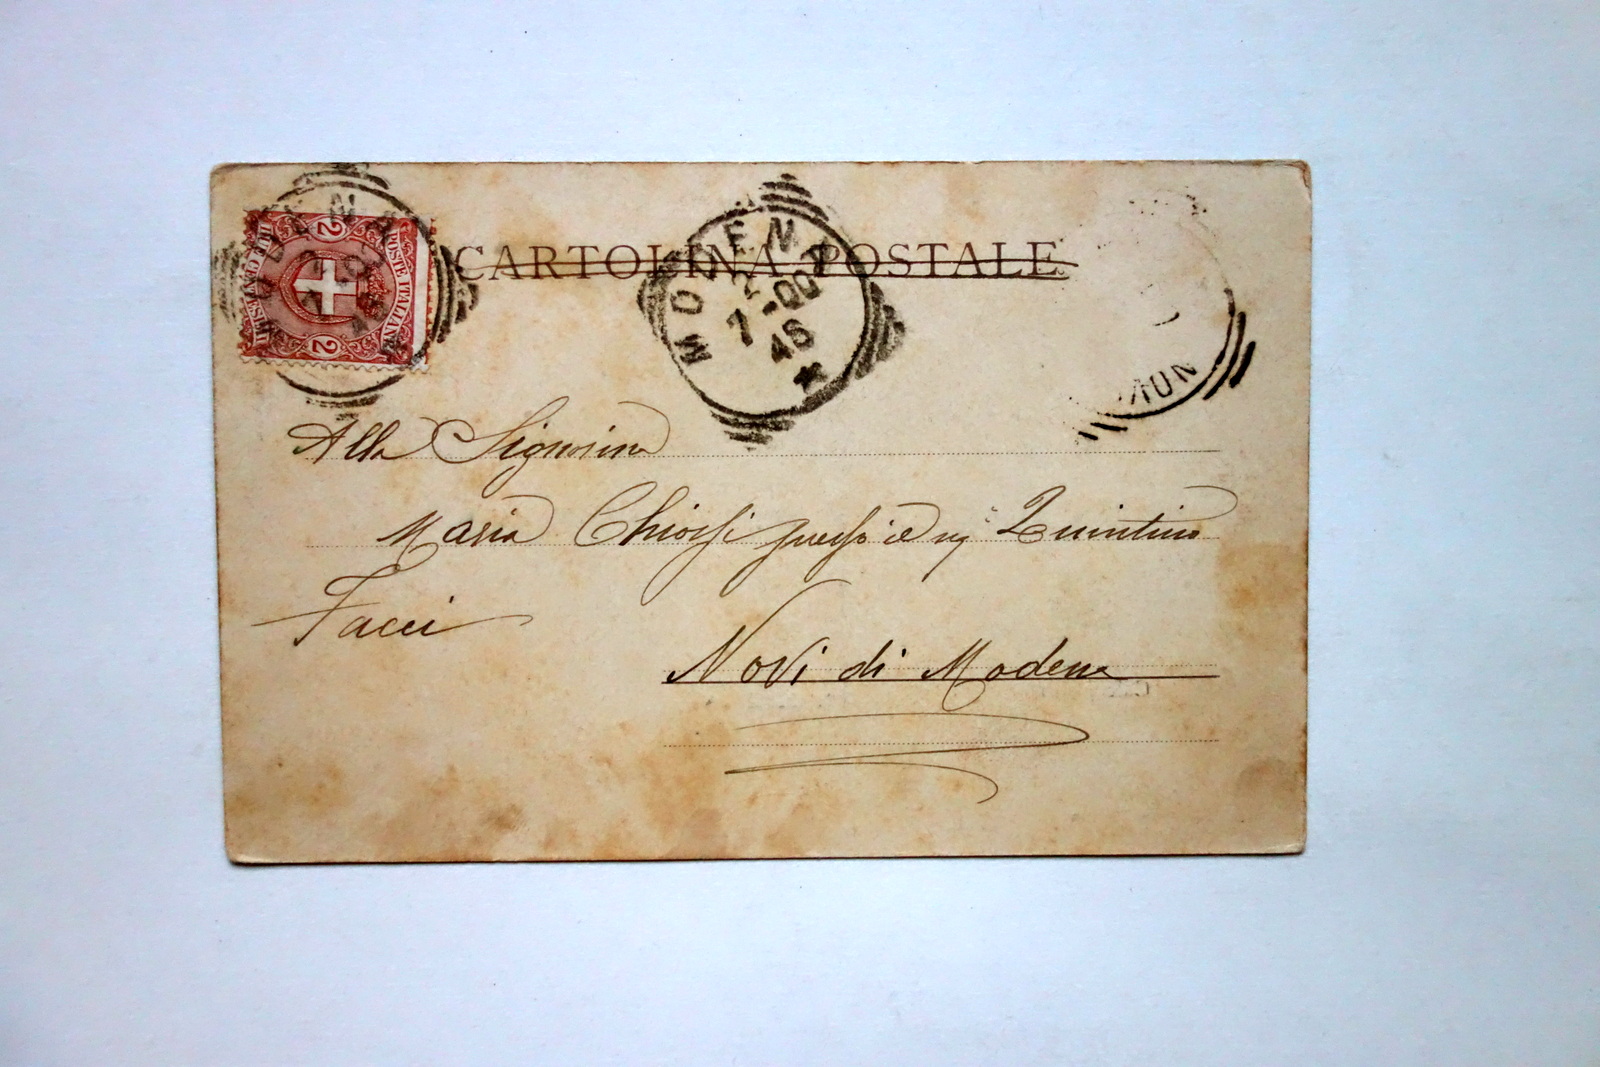 POSTE ITALIANE
DUE CENTESIMI
2
2
CARTOLINA POSTALE
MODENA
MODENA
7-00
46
Alla Signorina
Maria Chiossi presso il Quintino
Facci
Novi di Modena